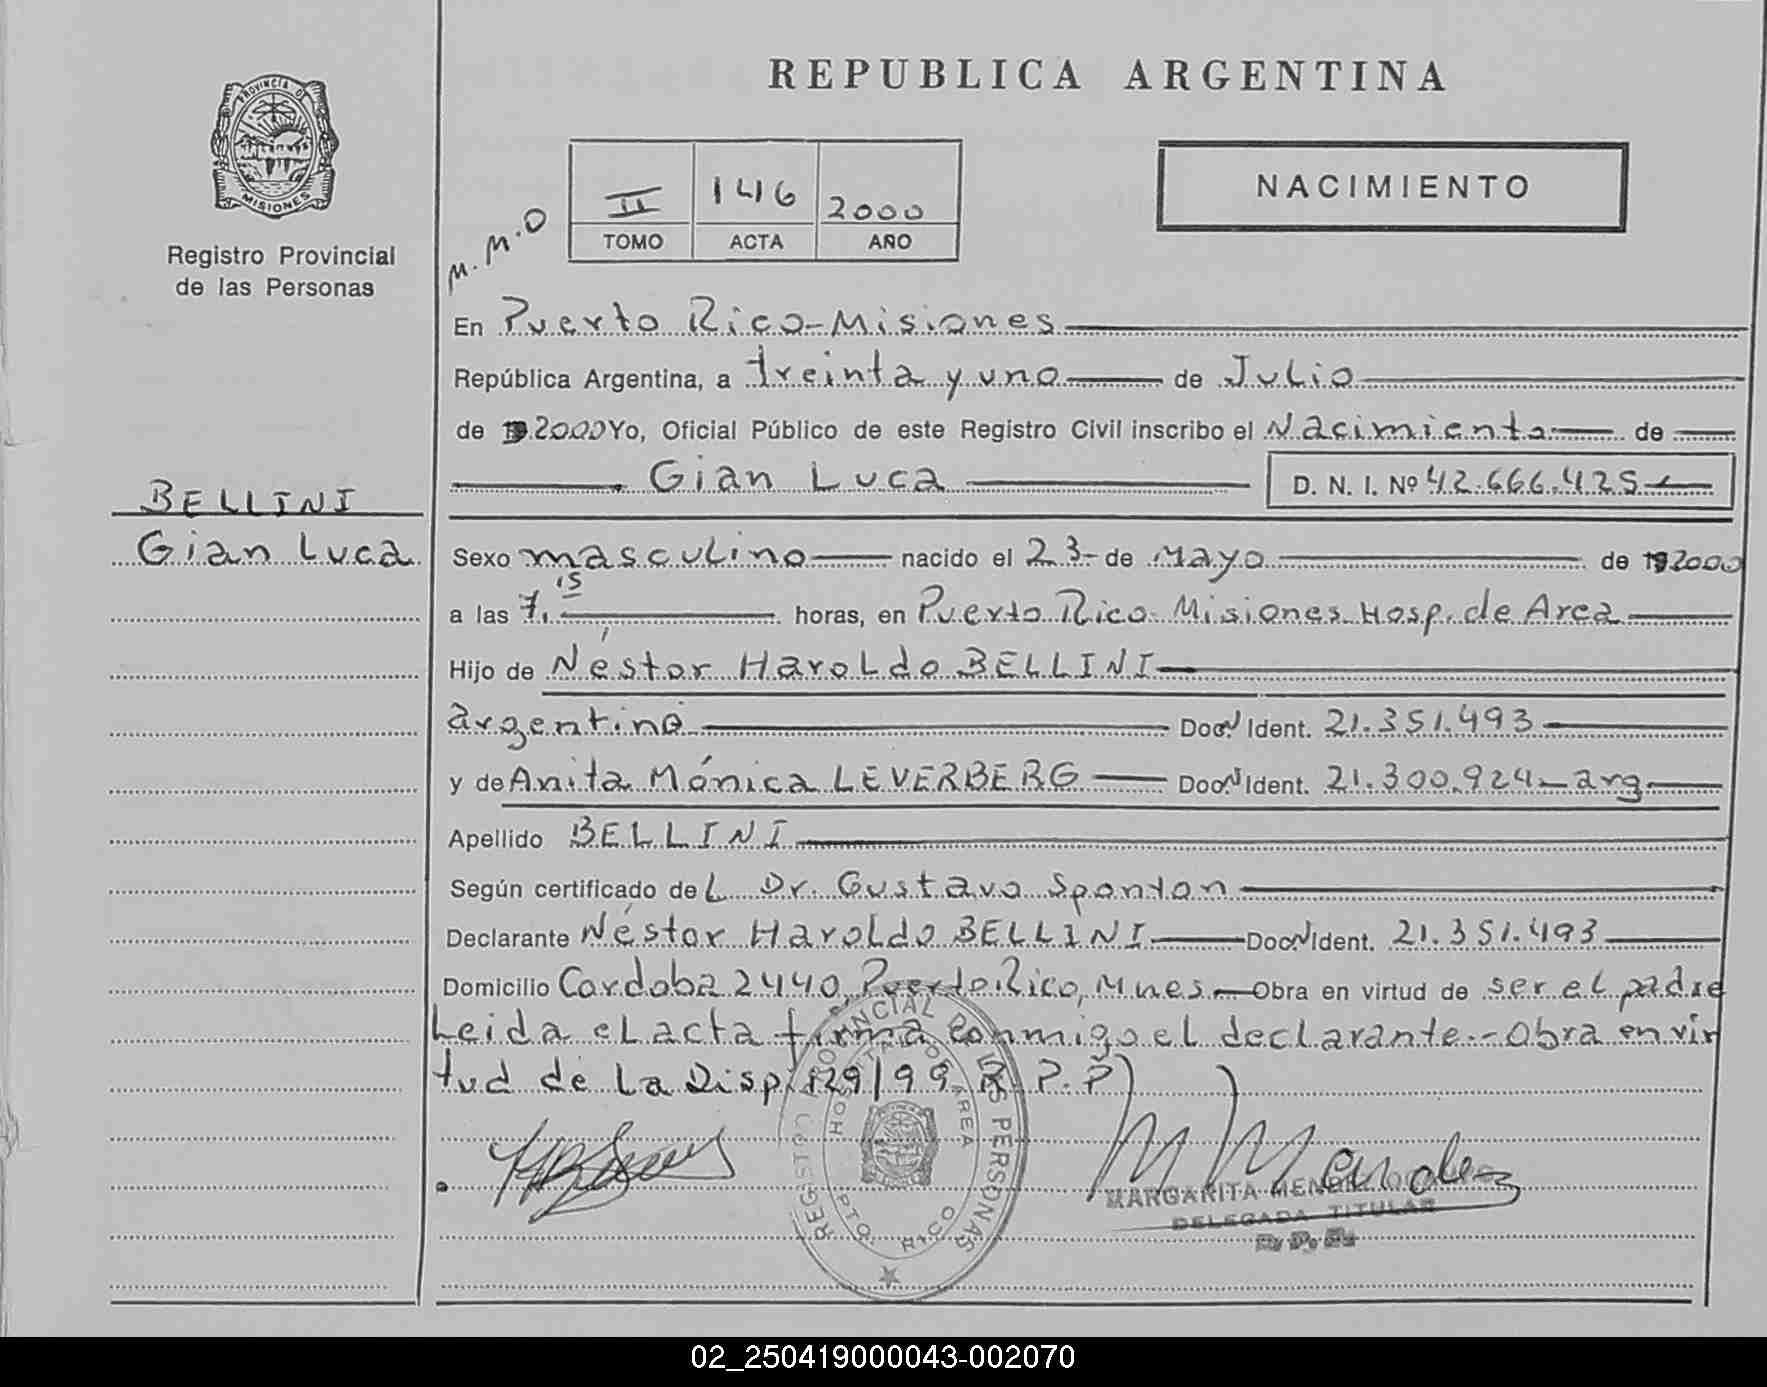 REPUBLICA ARGENTINA
PROVINCIA D
MISIONES
Registro Provincial
de las Personas
M.M.O
II 146 2000
TOMO ACTA AÑO
NACIMIENTO
En Puerto Rico-Misiones
República Argentina, a treinta y uno de Julio
de 19 2000 Yo, Oficial Público de este Registro Civil inscribo el Nacimiento de
Gian Luca D. N. I. Nº 42.666.425
BELLINI
Gian Luca
Sexo masculino nacido el 23 de Mayo de 19 2000
a las 7.15 horas, en Puerto Rico-Misiones Hosp. de Area
Hijo de Néstor Haroldo BELLINI
argentino Doc. Ident. 21.351.493
y de Anita Mónica LEVERBERG Doc. Ident. 21.300.924 - arg
Apellido BELLINI
Según certificado del Dr. Gustavo Sponton
Declarante Néstor Haroldo BELLINI Doc. Ident. 21.351.493
Domicilio Cordoba 2440, Puerto Rico, Mnes. Obra en virtud de ser el padre
Leida el acta firma conmigo el declarante.- Obra en vir
tud de la Disp. 129/99 R.P.P)
REGISTRO PROVINCIAL DE LAS PERSONAS
HOSPITAL DE AREA
PTO. RICO
M Mendez
MARGARITA
DELEGADA TITULAR
R. P. P.
02_250419000043-002070